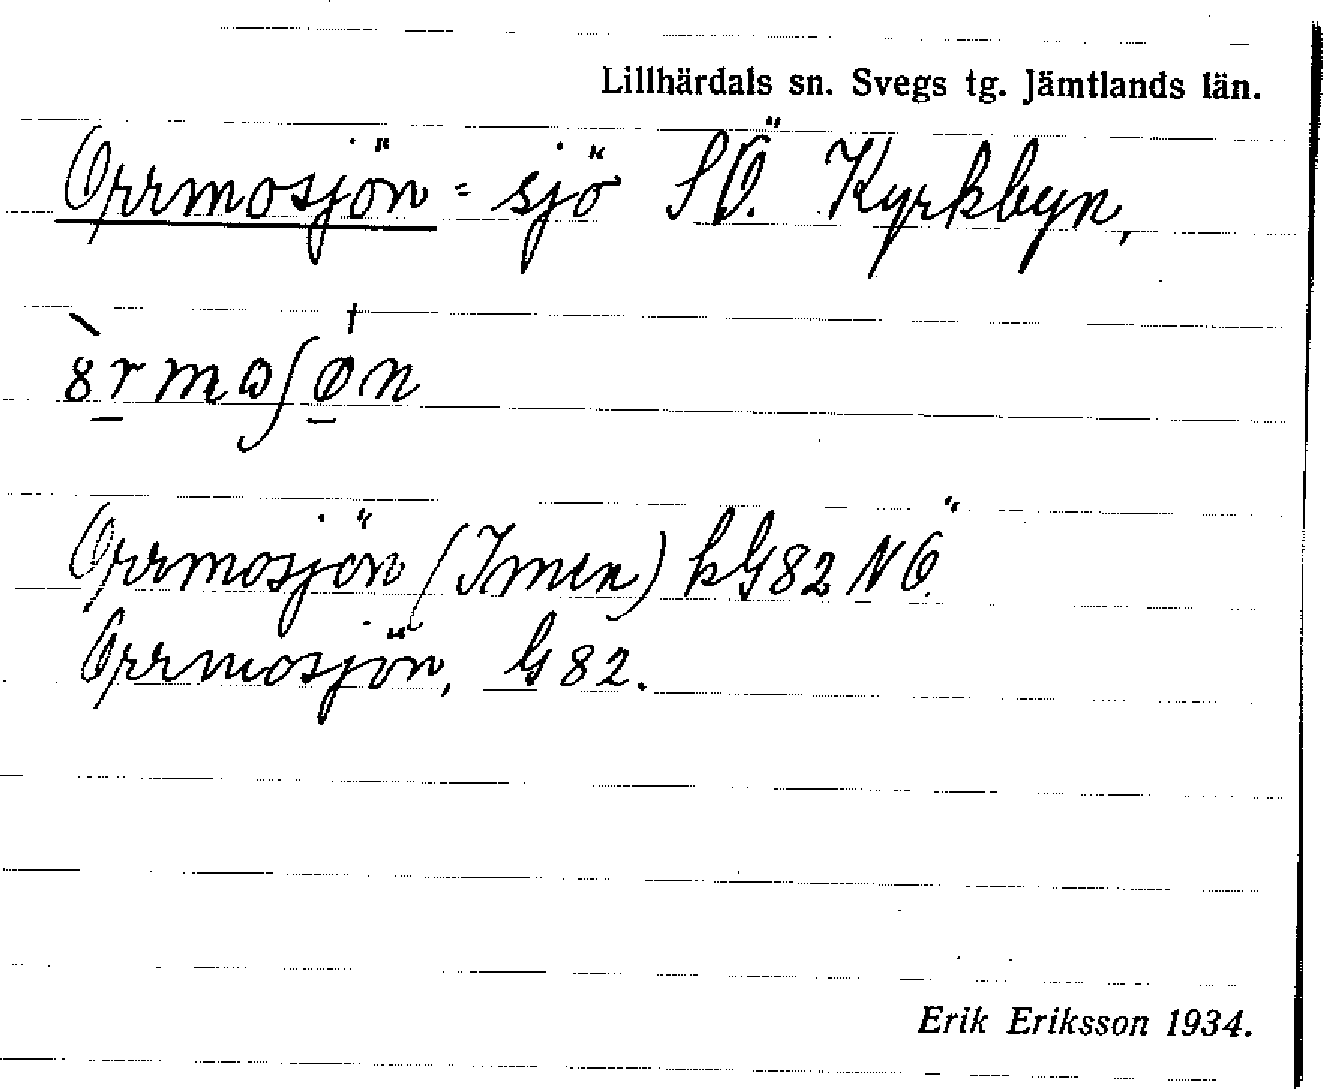 Lillhärdals sn. Svegs tg. Jämtlands län.
Orrmosjön = sjö SÖ. Kyrkbyn,
Orrmosjön (Imen) kG82 NÖ.
Orrmosjön, G82.
Erik Eriksson 1934.